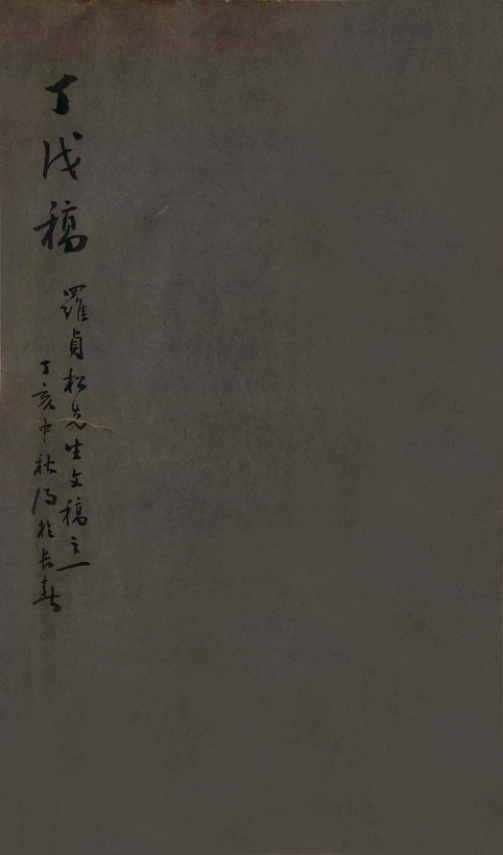 丁戊稿
羅貞松先生文稿之一
丁亥中秋得於长春